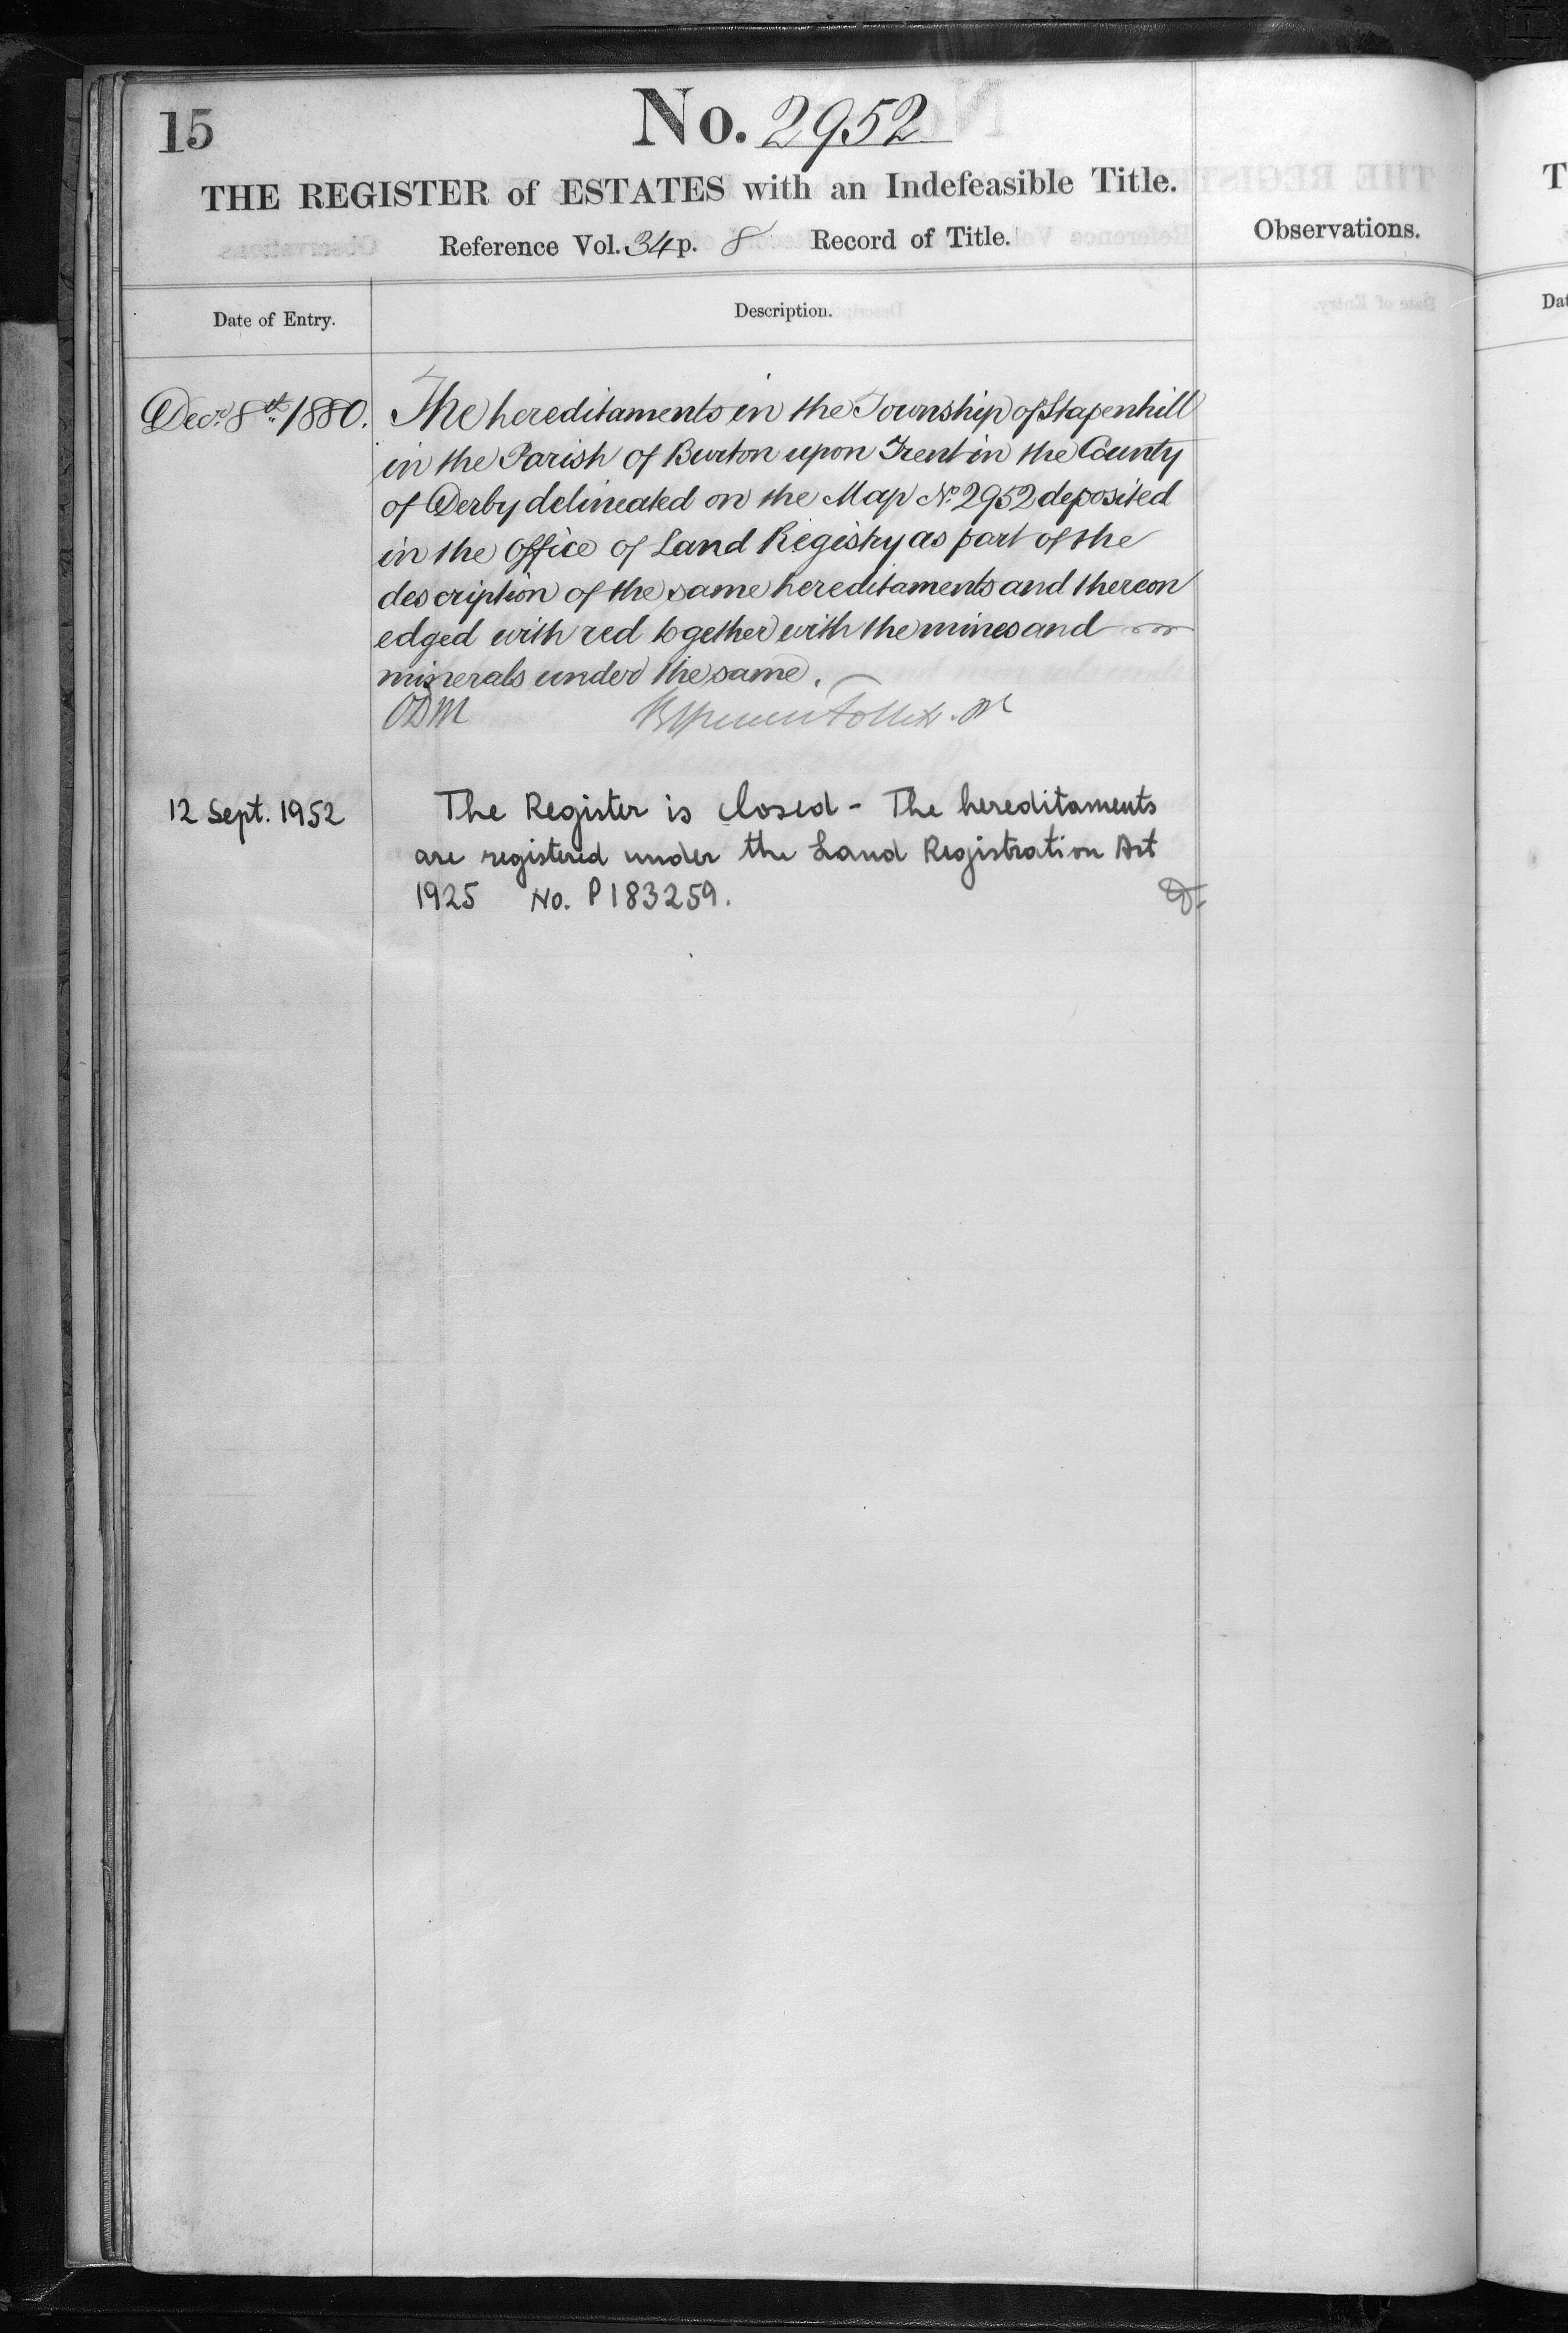 15
No. 2952
THE REGISTER of ESTATES with an Indefeasible Title.
Reference Vol. 34 p. 8 Record of Title.
Observations.
Date of Entry.
Description.
Decr. 8th. 1880.
The hereditaments in the Township of Stapenhill
in the Parish of Burton upon Trent in the County
of Derby delineated on the Map No. 2952 deposited
in the Office of Land Registry as part of the
description of the same hereditaments and thereon
edged with red together with the mines and
minerals under the same.
12 Sept. 1952
The Register is closed - The hereditaments
are registered under the Land Registration Act
1925 No. P183259.
T
Dat